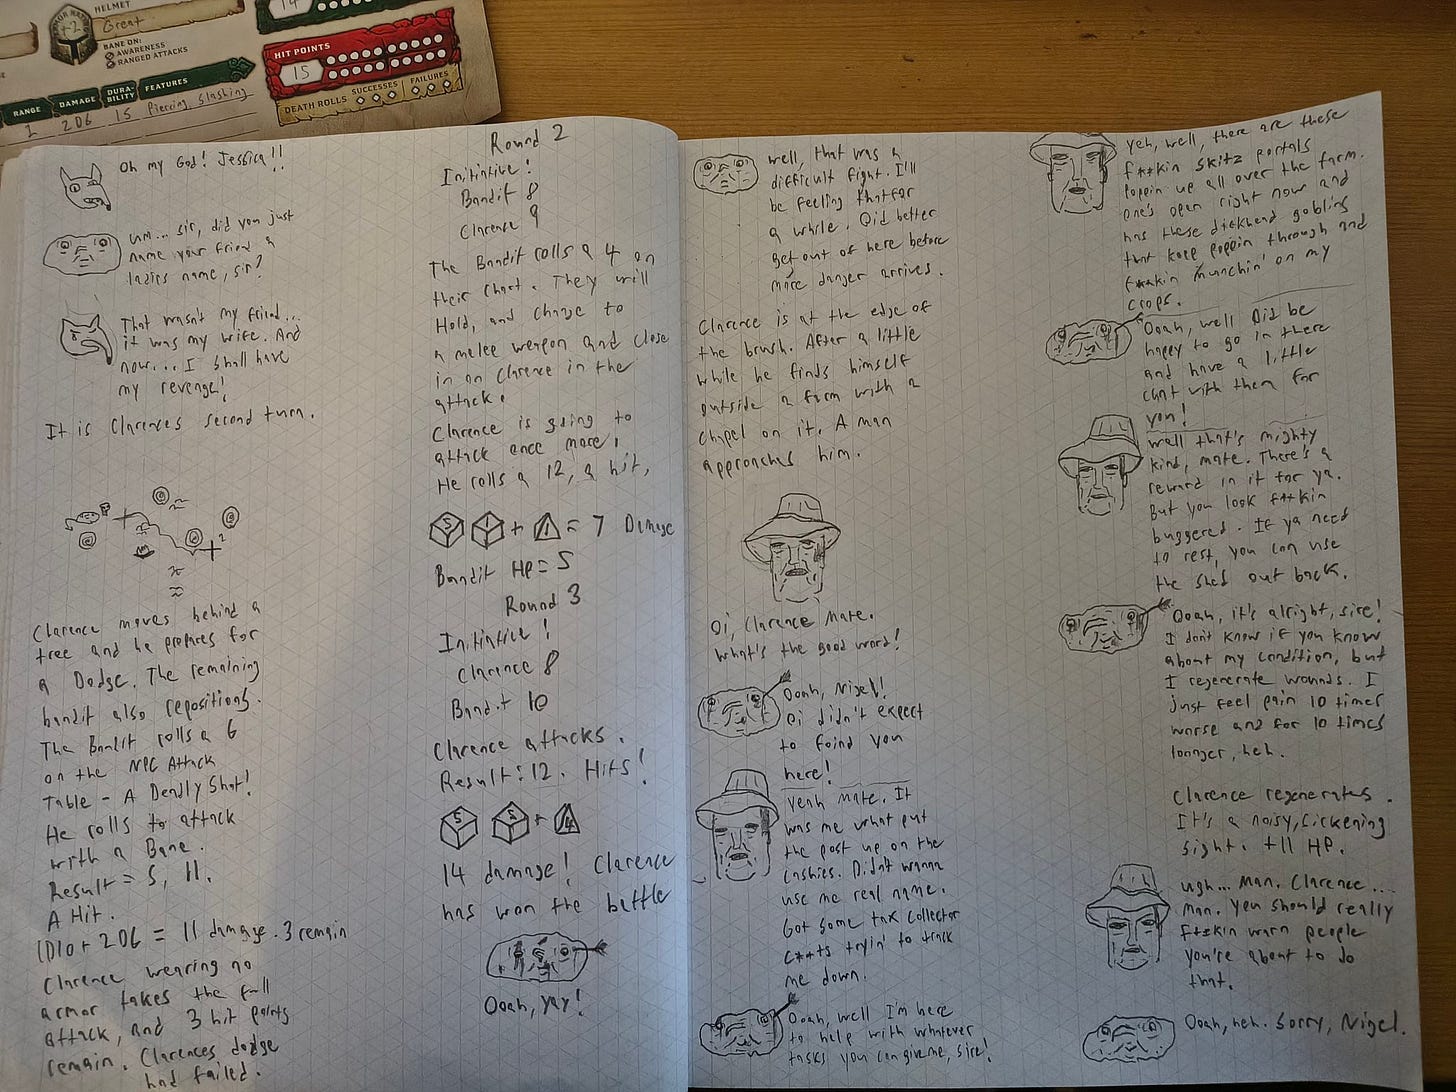 HELMET
Great
BANE ON:
AWARENESS
RANGED ATTACKS
RANGE
DAMAGE
DURA-
BILITY
FEATURES
1
2D6
15
Piercing Slashing
14
HIT POINTS
15
DEATH ROLLS
SUCCESSES
FAILURES
Oh my God! Jessica!!
um... sir, did you just
name your friend a
ladies name, sir?
That wasn't my friend...
it was my wife. And
now... I shall have
my revenge!
It is Clarences second turn.
Clarence moves behind a
tree and he prepares for
a Dodge. The remaining
bandit also repositions.
The Bandit rolls a 6
on the NPC Attack
Table - A Deadly Shot!
He rolls to attack
with a Bane.
Result = 5, 11.
A Hit.
1D10 + 2D6 = 11 damage. 3 remain
Clarence wearing no
armor takes the full
attack, and 3 hit points
remain. Clarences dodge
had failed.
Round 2
Initiative!
Bandit 8
Clarence 9
The Bandit rolls a 4 on
their chart. They will
Hold, and change to
a melee weapon and close
in on Clarence in the
attack.
Clarence is going to
attack once more!
He rolls a 12, a hit,
5 1 + 1 = 7 Damage
Bandit HP = 5
Round 3
Initiative!
Clarence 8
Bandit 10
Clarence attacks.
Result: 12. Hits!
5 5 + 4
14 damage! Clarence
has won the battle
Ooah, yay!
well, that was a
difficult fight. I'll
be feeling that for
a while. Oid better
get out of here before
more danger arrives.
Clarence is at the edge of
the brush. After a little
while he finds himself
outside a farm with a
chapel on it. A man
approaches him.
Oi, Clarence mate.
What's the good word!
Ooah, Nigel!
Oi didn't expect
to foind you
here!
Yeah mate. It
was me what put
the post up on the
Cashies. Didn't wanna
use me real name.
Got some tax collector
c**ts tryin' to track
me down.
Ooah, well I'm here
to help with whatever
tasks you can give me, sire!
yeh, well, there are these
f**kin skitz portals
poppin up all over the farm.
one's open right now and
has these dickhead goblins
that keep poppin through and
f**kin munchin' on my
crops.
Ooah, well Oid be
happy to go in there
and have a little
chat with them for
you!
well that's mighty
kind, mate. There's a
reward in it for ya.
But you look f**kin
buggered. If ya need
to rest, you can use
the shed out back.
Ooah, it's alright, sire!
I don't know if you know
about my condition, but
I regenerate wounds. I
just feel pain 10 times
worse and for 10 times
longer, heh.
Clarence regenerates.
It's a noisy, sickening
sight. +11 HP.
ugh... Man. Clarence...
man. you should really
f**kin warn people
you're about to do
that.
Ooah, heh. Sorry, Nigel.